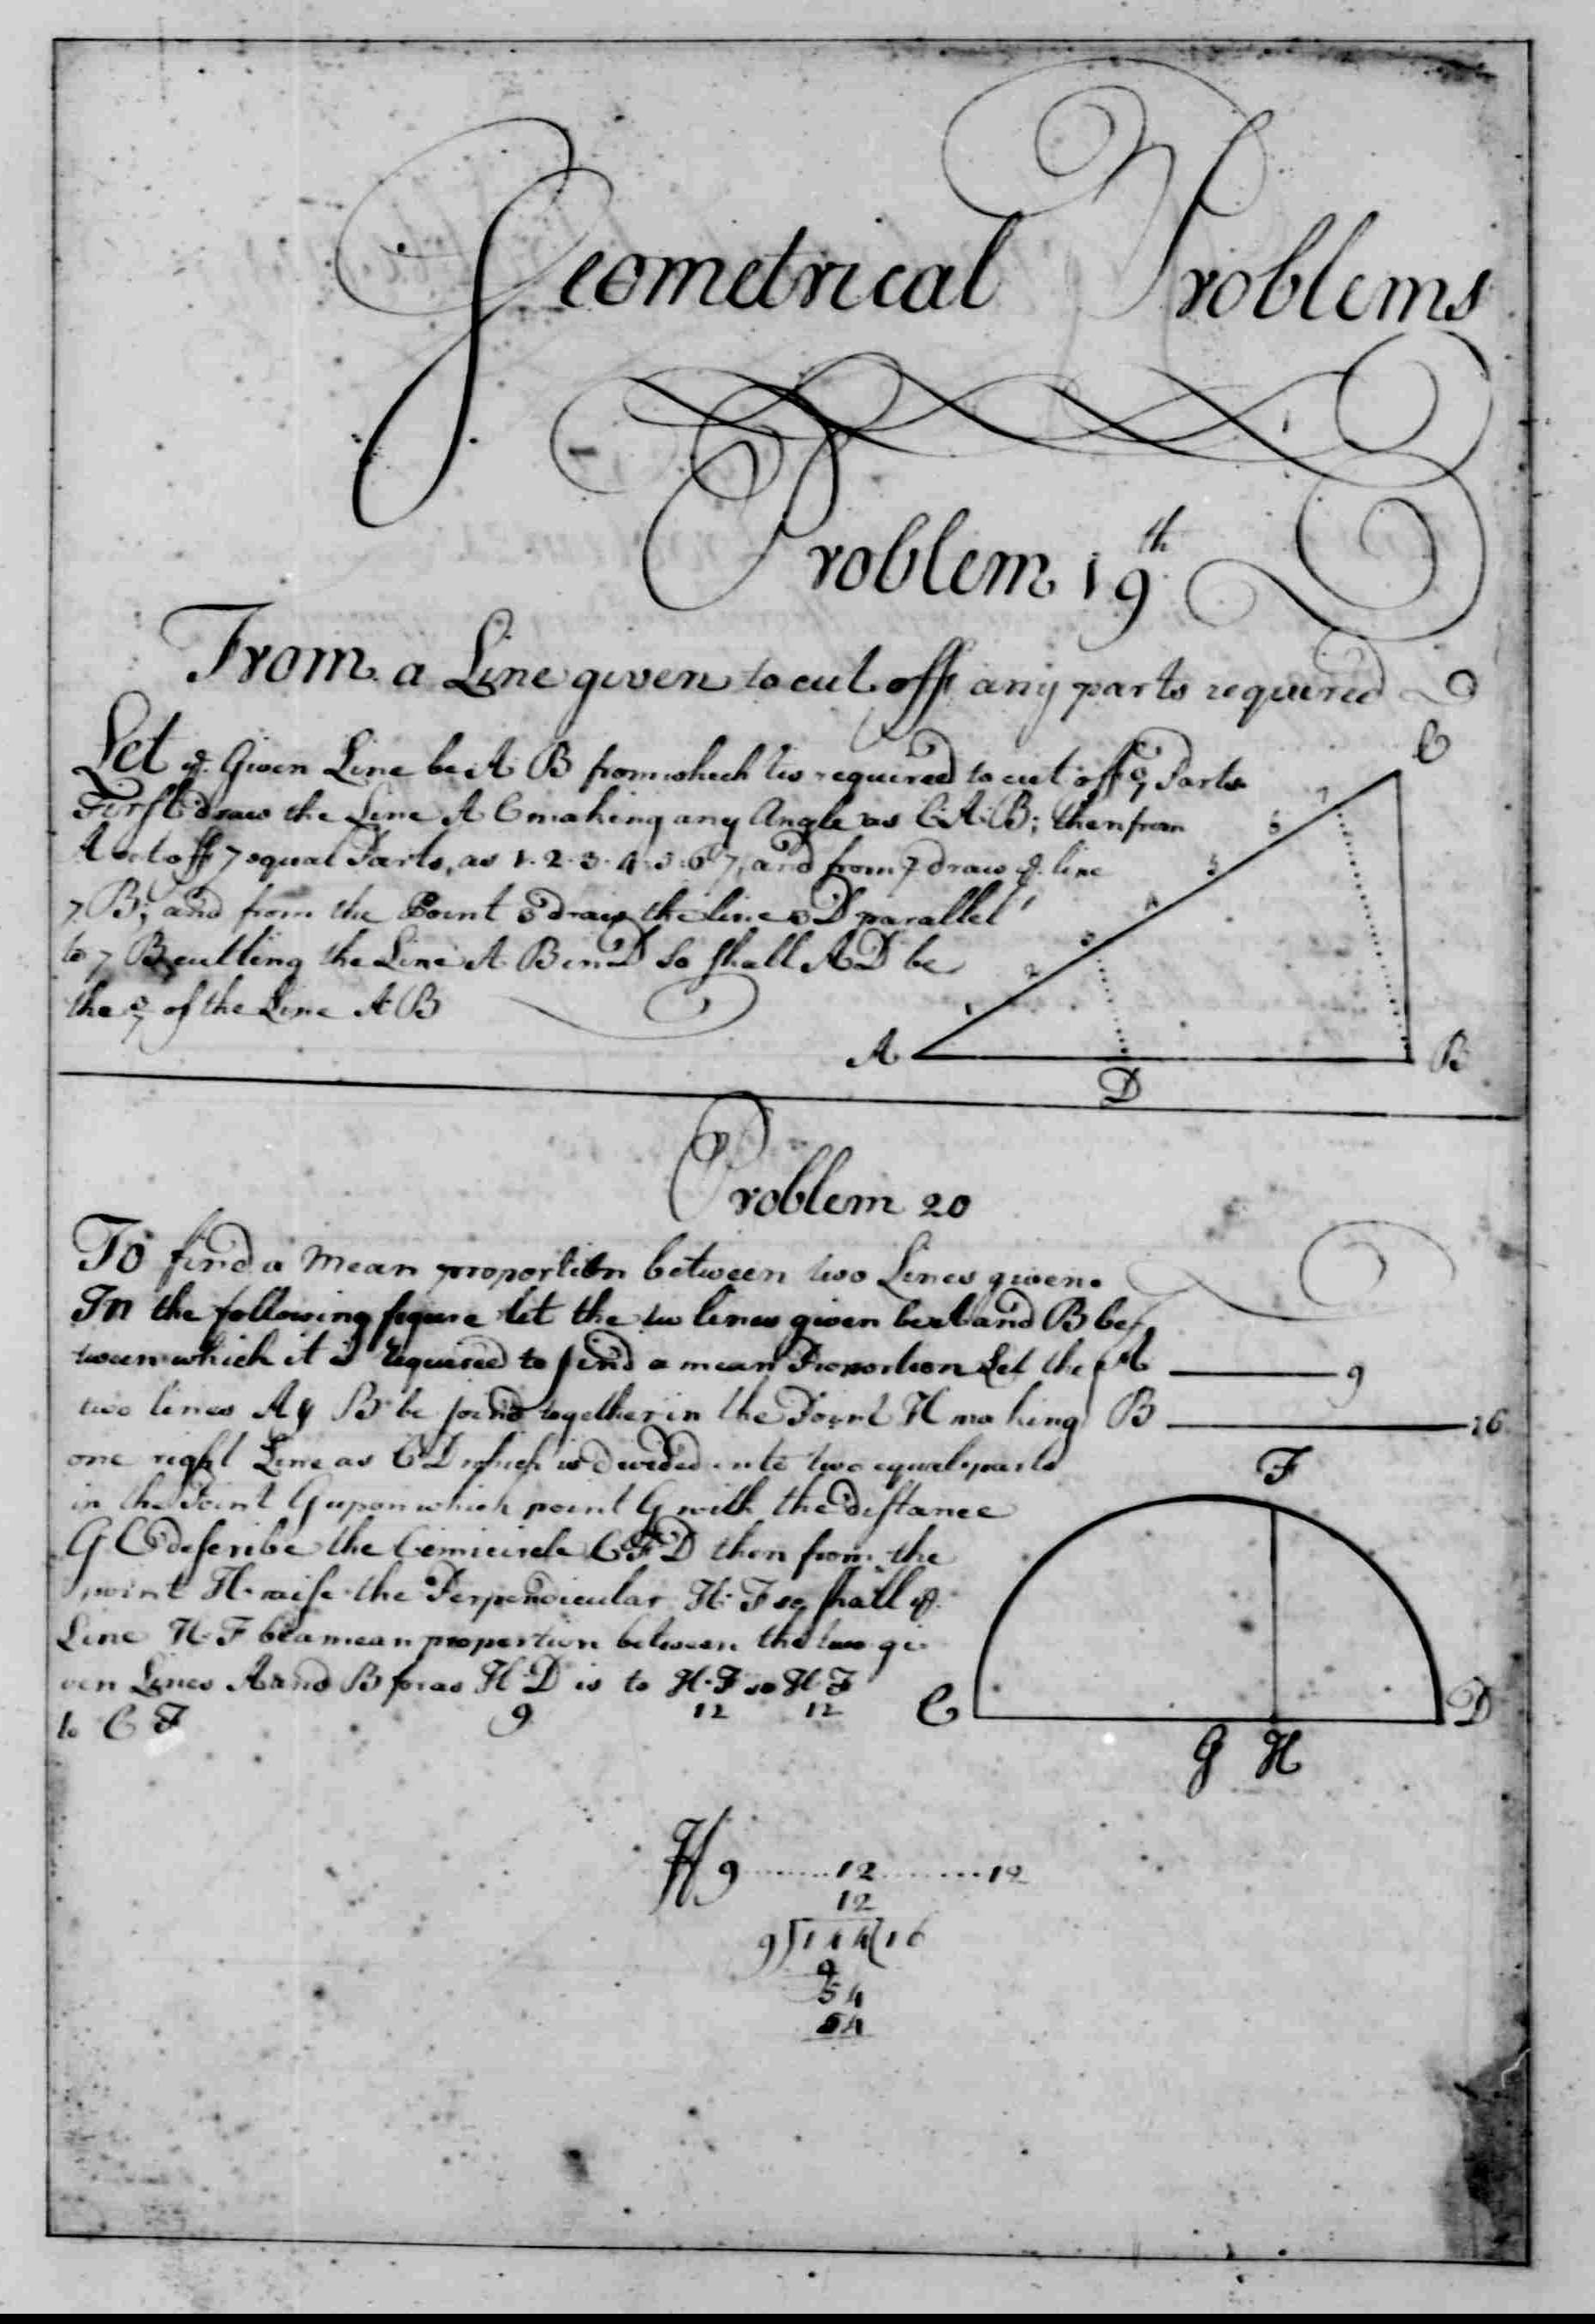 Geometrical Problems
Problem 19th
From a Line given to cut off any parts required
Let ye Given Line be A B from which tis required to cut off 3/7 Parts
First draw the Line A C making any Angle as C A B; then from
A set off 7 equal Parts, as 1. 2. 3. 4. 5. 6. 7, and from 7 draw ye line
7 B; and from the Point 3 draw the line 3 D parallel
to 7 B cutting the Line A B in D so shall A D be
the 3/7 of the Line A B
C
7
6
5
4
3
2
1
A
B
D
Problem 20
To find a Mean proportion between two Lines given.
In the following figure let the two lines given be A and B be
tween which it is required to find a mean Proportion Let the
two lines A & B be joind together in the Point H making
one right Line as C D which is divided into two equal parts
in the Point G upon which point G with the distance
G C describe the Cemicircle C F D then from the
point H raise the Perpendicular H F so shall ye
Line H F be a mean proportion between the two gi
ven Lines A and B for as H D is to H F so H F
to C F 9 12 12
A 9
B 16
F
C
D
G H
H 9 ........ 12 ......... 12
12
9) 144 (16
9
54
54